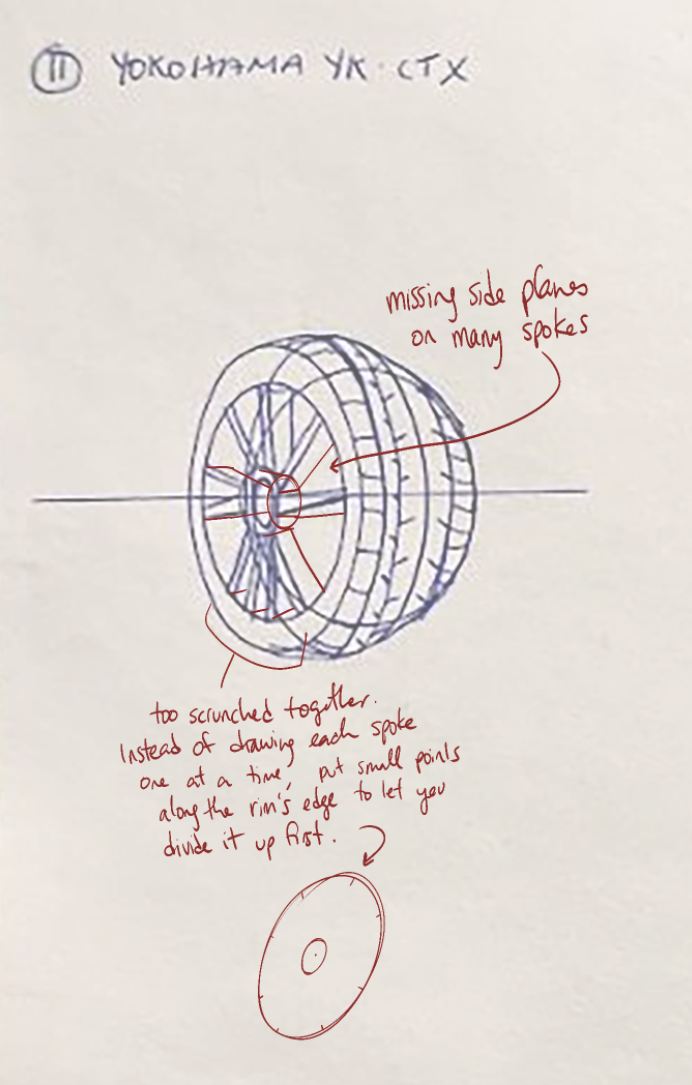 11 YOKOHAMA YK-CTX
missing side planes
on many spokes
too scrunched together.
Instead of drawing each spoke
one at a time, put small points
along the rim's edge to let you
divide it up first.